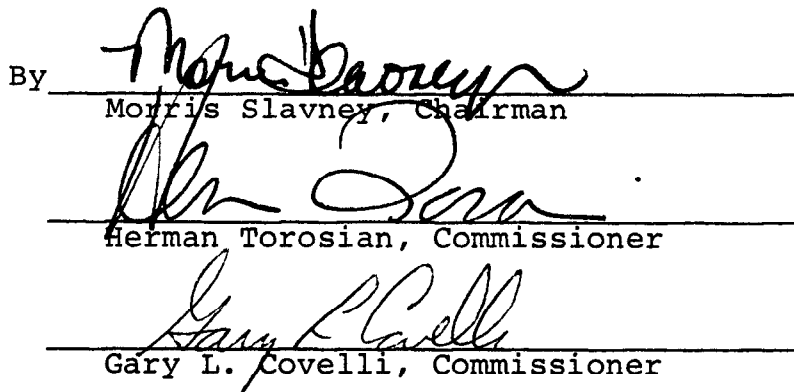 By Morris Slavney
Morris Slavney, Chairman
Herman Torosian, Commissioner
Gary L Covelli
Gary L. Covelli, Commissioner